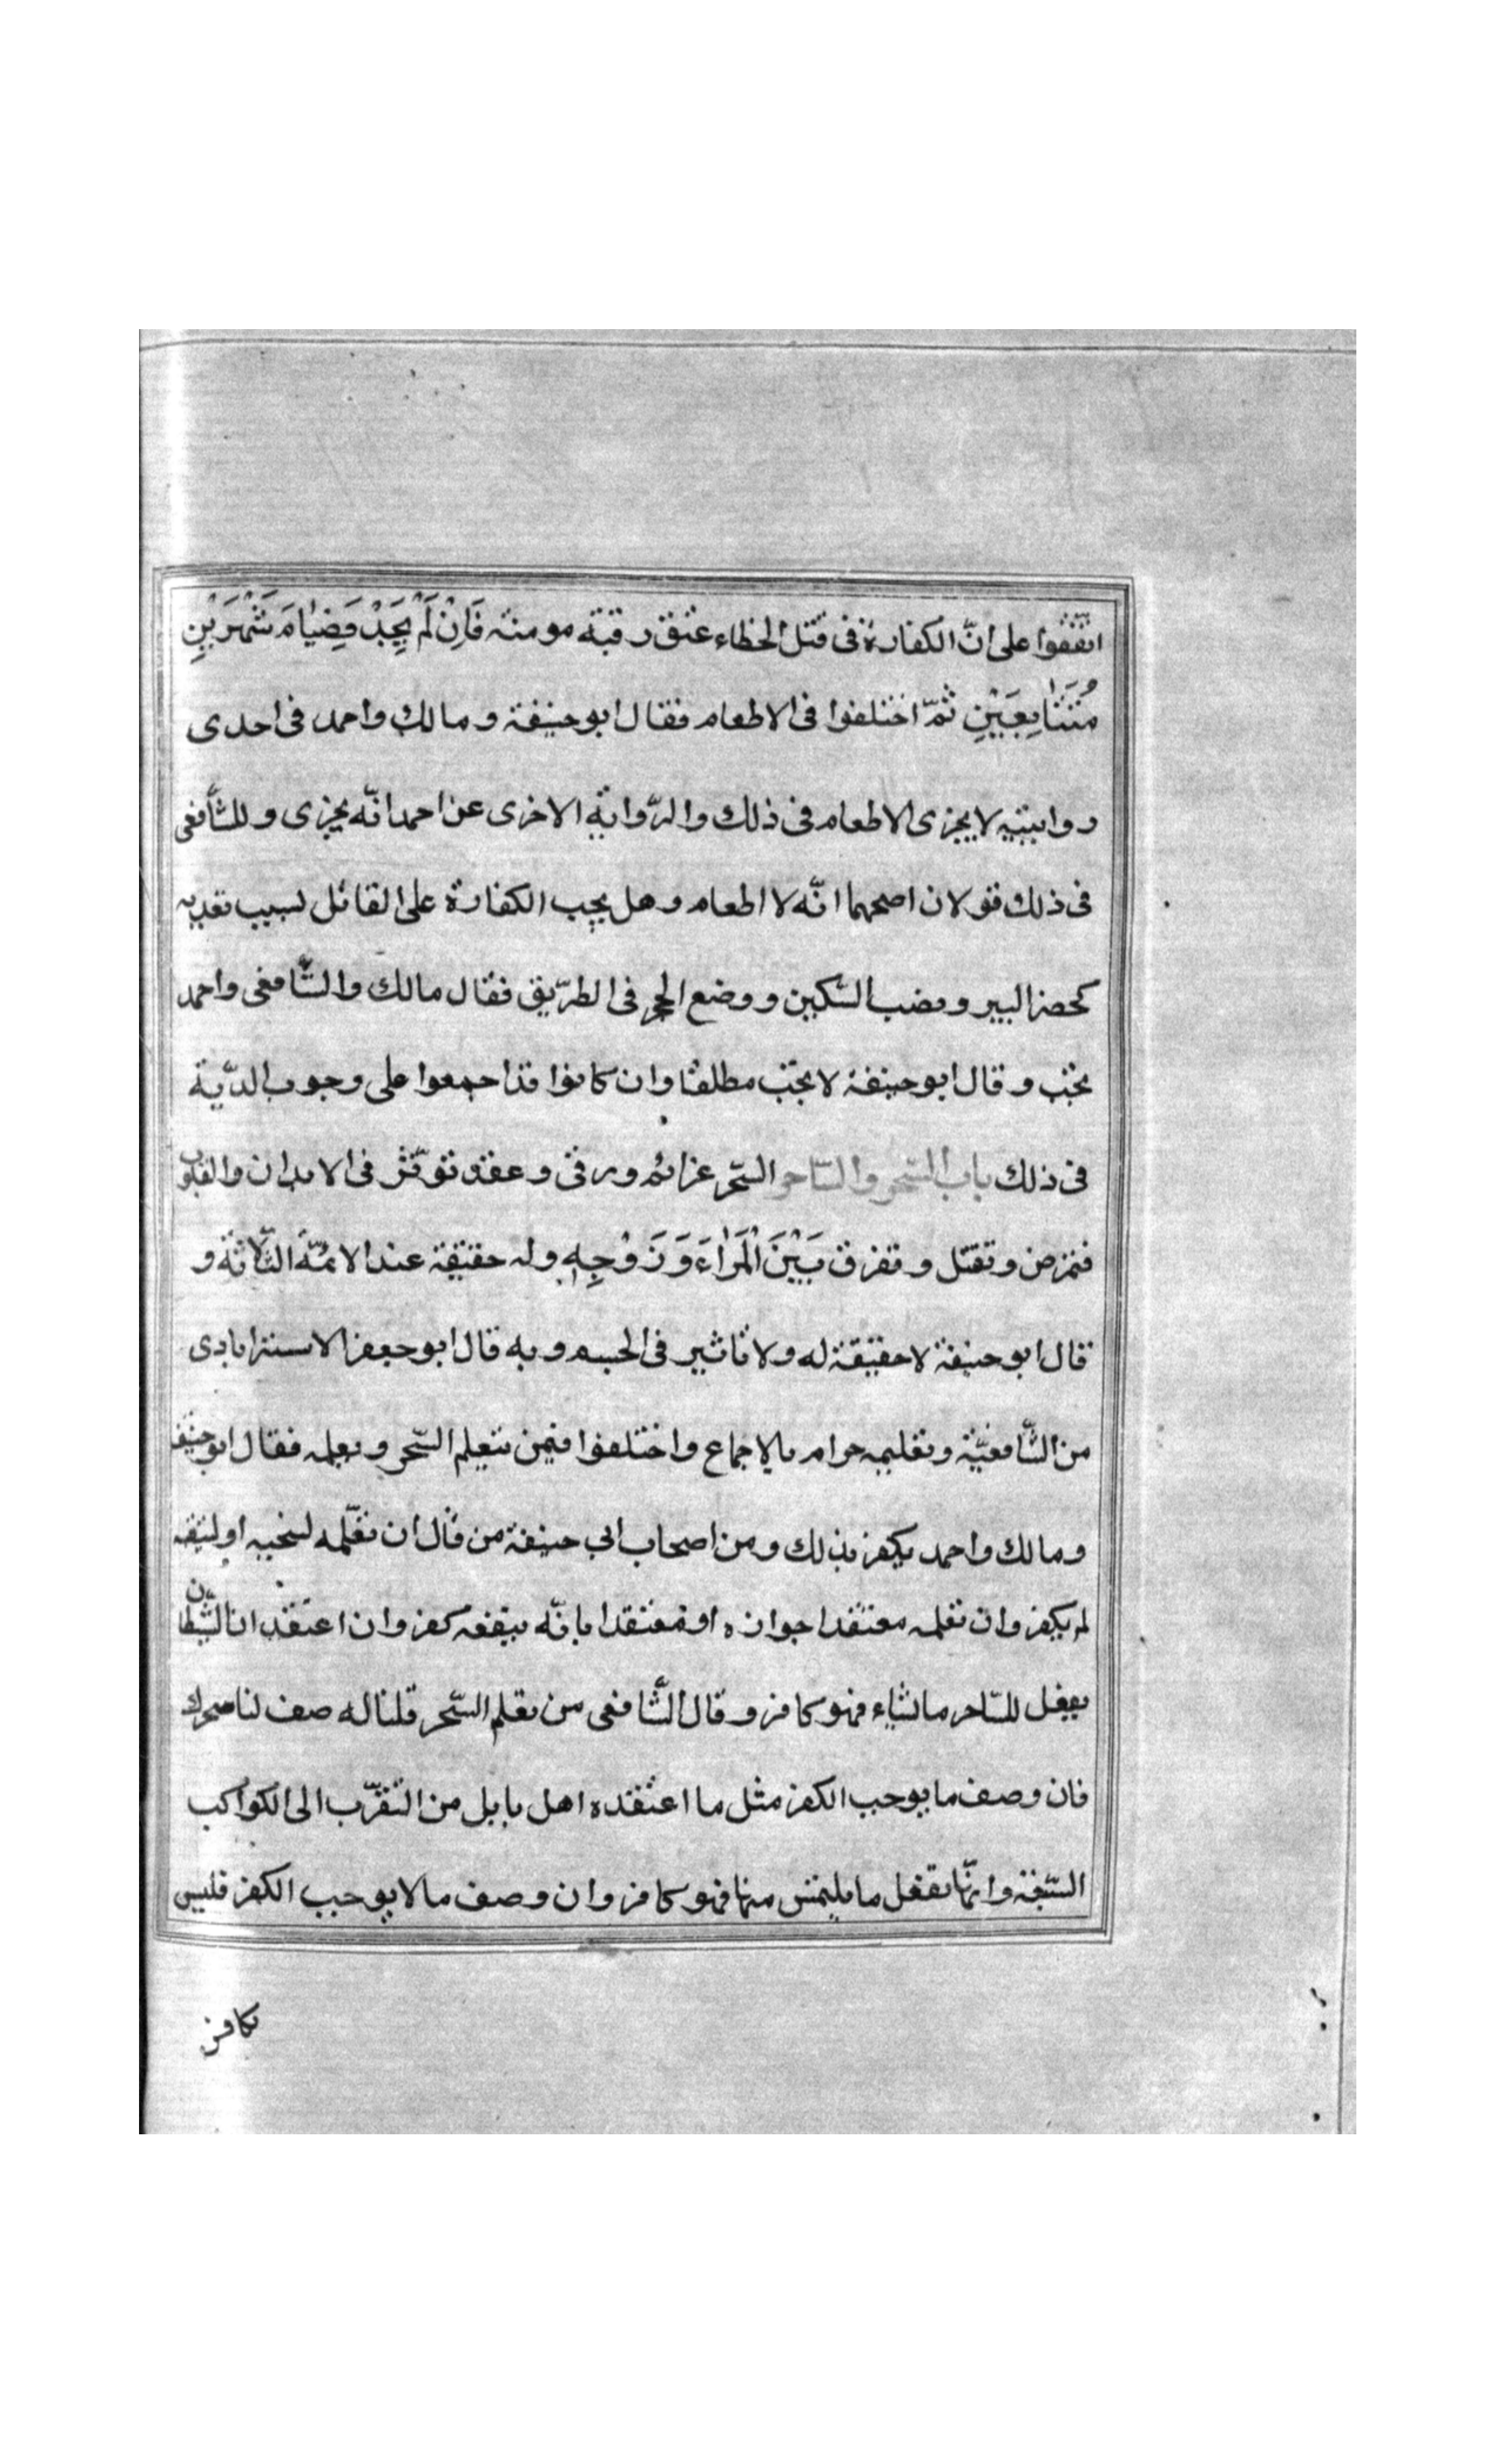 اتّفقوا على انّ الكفارة فى قتل الخطاء عتق رقبة مومنة فَاِنْ لَمْ يَجِدْ فَصِيَامَ شَهْرَيْنِ
مُتَتَابِعَيْنِ ثمّ اختلفوا فى الاطعام فقال ابو حنيفة و مالك واحمد فى احدى
روايتيه لا يجزى الاطعام فى ذلك والرّواية الاخرى عن احمد انّه يجزى و للشّافعى
فى ذلك قولان اصحهما انّه لا اطعام و هل يجب الكفارة على القاتل لسبب تعديه
كحفر البير و نصب السّكين و وضع الحجر فى الطرّيق فقال مالك والشّافعى واحمد
تجب و قال ابو حنيفة لا تجب مطلقا وان كانوا قد اجمعوا على وجوب الدّية
فى ذلك باب السّحر والسّاحر السّحر عزائم و رقى و عقد توثّر فى الابدان والقلوب
فتمرض و تقتل و تفرق بَيْنَ الْمَرْاءَ وَ زَوْجِهِ وله حقيقة عند الائمّة الثّلاثة و
قال ابو حنيفة لا حقيقة له ولا تاثير فى الجسم و به قال ابو جعفر الاسترابادى
من الشّافعيّة و تعليمه حرام بالاجماع واختلفوا فيمن يتعلم السّحر و يعلمه فقال ابو حنيفة
و مالك واحمد يكفر بذلك و من اصحاب ابى حنيفة من قال ان تعلّمه لسحبه او ليتقيه
لم يكفر وان تعلمه معتقدا جوازه او معتقدا بانّه ينفعه كفر وان اعتقد ان الشّيطان
يفعل للسّاحر ما لشاء فهو كافر و قال الشّافعى من تعلم السّحر قلنا له صف لنا سحرك
فان وصف ما يوجب الكفر مثل ما اعتقده اهل بابل من التقرّب الى الكواكب
السّبعة وانّها تفعل ما يلتمس منها فهو كافر وان وصف ما لا يوجب الكفر فليس
بكافر